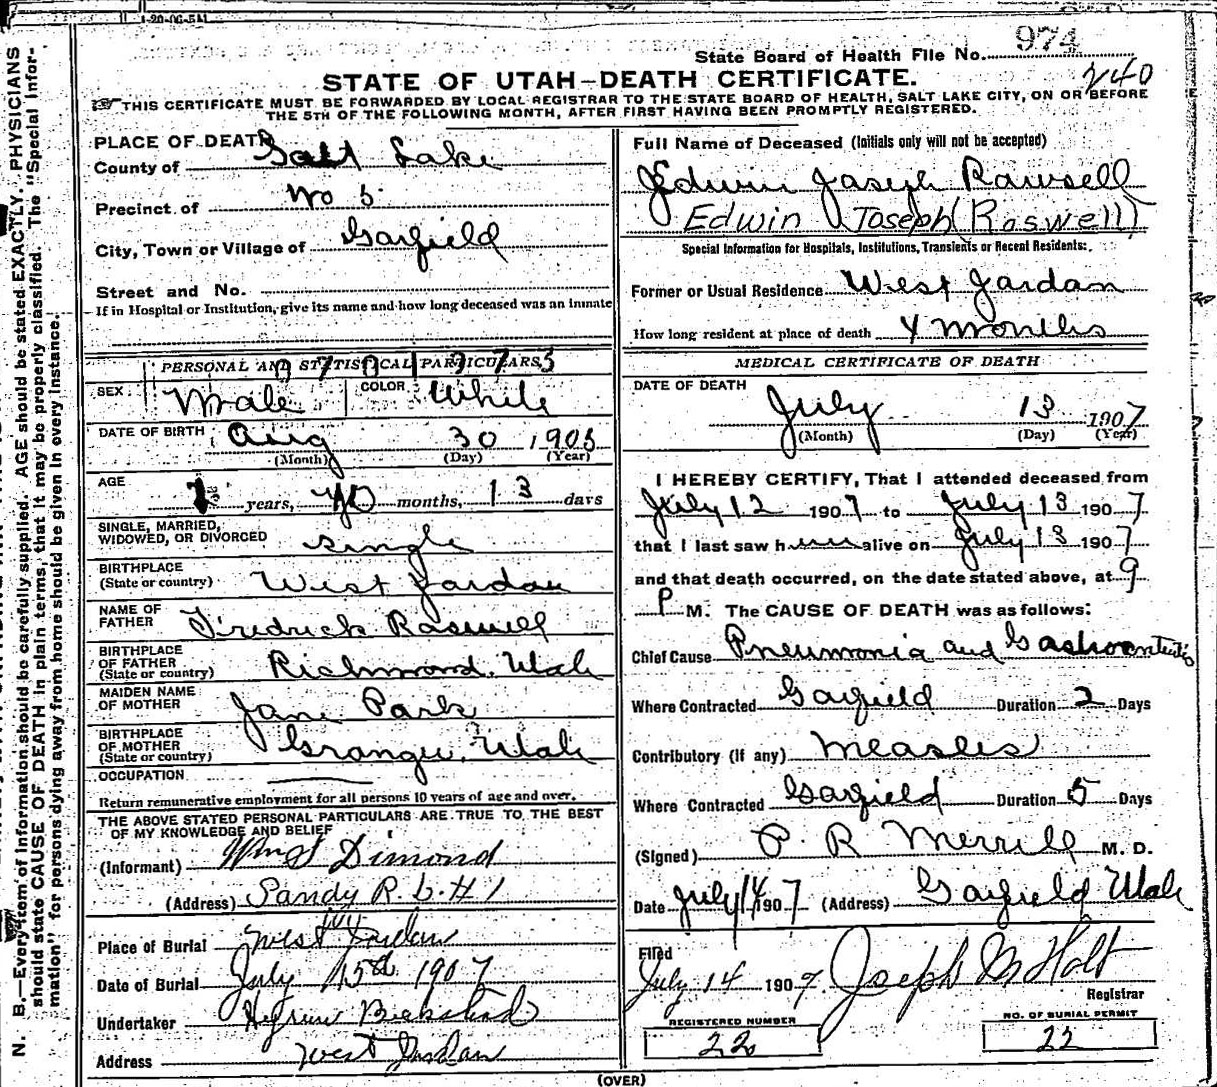 1-20-06-5M
State Board of Health File No. 974
240
STATE OF UTAH—DEATH CERTIFICATE.
THIS CERTIFICATE MUST BE FORWARDED BY LOCAL REGISTRAR TO THE STATE BOARD OF HEALTH, SALT LAKE CITY, ON OR BEFORE
THE 5TH OF THE FOLLOWING MONTH, AFTER FIRST HAVING BEEN PROMPTLY REGISTERED.
N. B.—Every item of information should be carefully supplied. AGE should be stated EXACTLY. PHYSICIANS
should state CAUSE OF DEATH in plain terms, that it may be properly classified. The "Special Infor-
mation" for persons dying away from home should be given in every instance.
PLACE OF DEATH
County of Salt Lake
Precinct of No 5
City, Town or Village of Garfield
Street and No.
If in Hospital or Institution, give its name and how long deceased was an inmate
PERSONAL AND STATISTICAL PARTICULARS
SEX Male COLOR White
DATE OF BIRTH Aug 30, 1905
(Month) (Day) (Year)
AGE 1 years, 10 months, 13 days
SINGLE, MARRIED,
WIDOWED, OR DIVORCED Single
BIRTHPLACE
(State or country) West Jordan
NAME OF
FATHER Fredrick Roswell
BIRTHPLACE
OF FATHER
(State or country) Richmond, Utah
MAIDEN NAME
OF MOTHER Jane Park
BIRTHPLACE
OF MOTHER
(State or country) Granger, Utah
OCCUPATION
Return remunerative employment for all persons 10 years of age and over.
THE ABOVE STATED PERSONAL PARTICULARS ARE TRUE TO THE BEST
OF MY KNOWLEDGE AND BELIEF
(Informant) Wm S Dimond
(Address) Sandy R. #1
Place of Burial West Jordan
Date of Burial July 15th 1907
Undertaker
Address West Jordan
Full Name of Deceased (Initials only will not be accepted)
Edwin Joseph Rawsell
Edwin Joseph (Roswell)
Special Information for Hospitals, Institutions, Transients or Recent Residents:
Former or Usual Residence West Jordan
How long resident at place of death 4 months
MEDICAL CERTIFICATE OF DEATH
DATE OF DEATH
July 13 1907
(Month) (Day) (Year)
I HEREBY CERTIFY, That I attended deceased from
July 12 1907 to July 13 1907
that I last saw him alive on July 13 1907
and that death occurred, on the date stated above, at 9
P M. The CAUSE OF DEATH was as follows:
Chief Cause Pneumonia and Gastroenteritis
Where Contracted Garfield Duration 2 Days
Contributory (if any) Measles
Where Contracted Garfield Duration 5 Days
(Signed) P. R Merrill M. D.
Date July 14 1907 (Address) Garfield Utah
Filed
July 14 1907. Joseph M Holt
Registrar
REGISTERED NUMBER
22
NO. OF BURIAL PERMIT
22
(OVER)